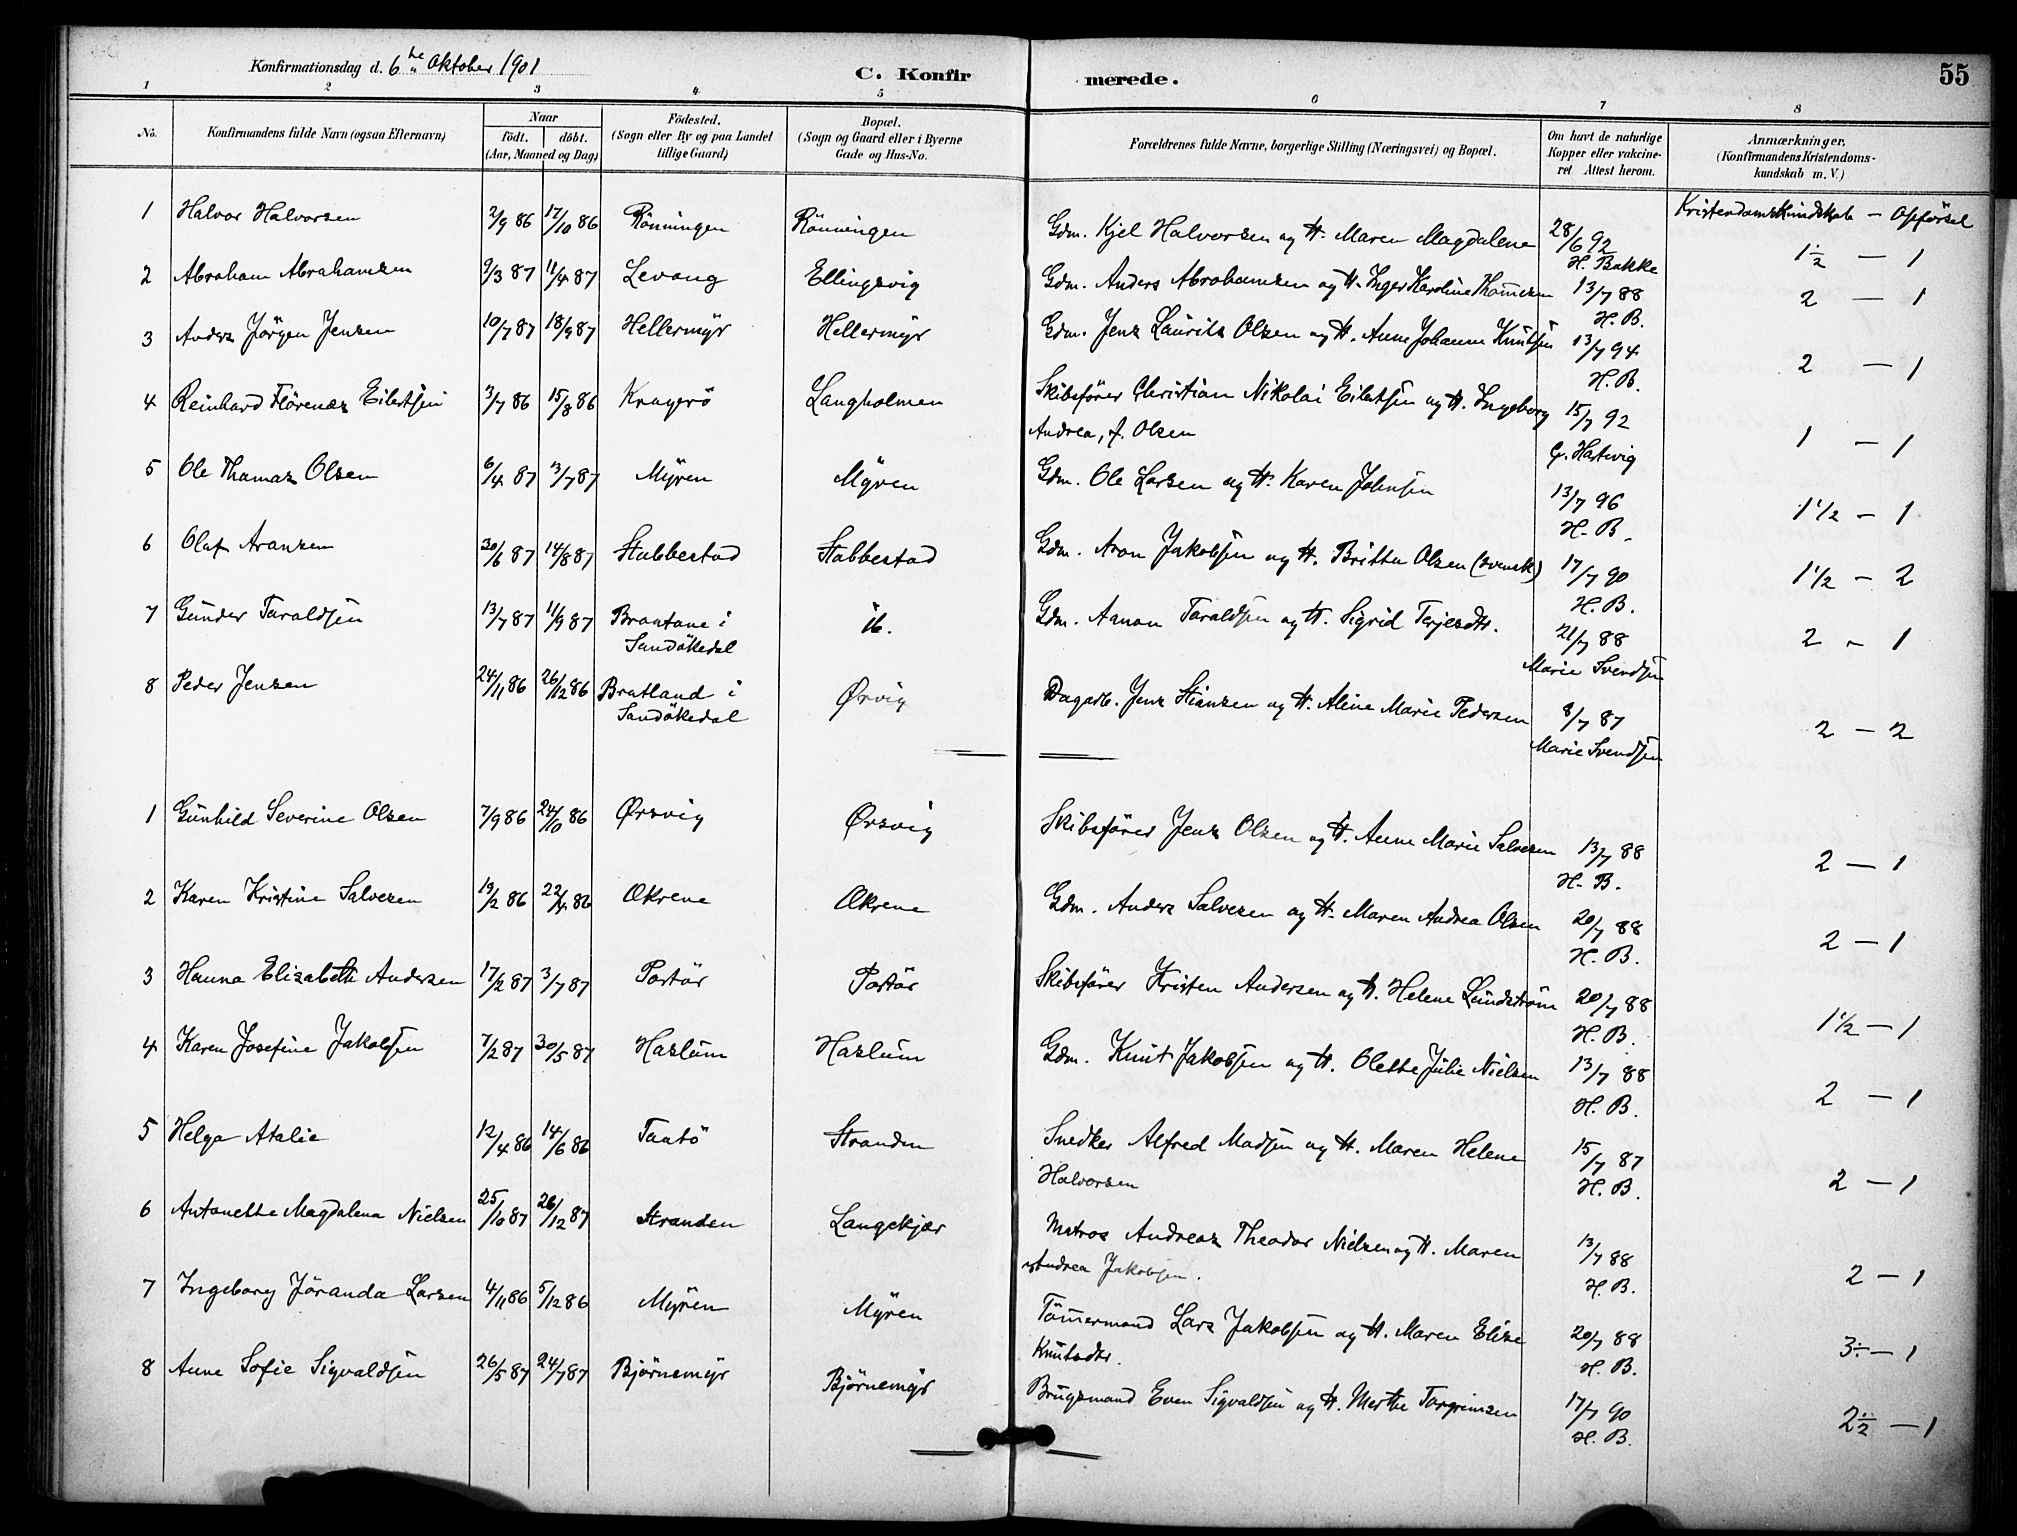 Konfirmationsdag d. 6te Oktober 1901 C. Konfirmerede. 55
1 2 3 4 5 6 7 8
No. Konfirmandens fulde Navn (ogsaa Efternavn) Naar födt. döbt. (Aar, Maaned og Dag) Födested. (Sogn eller By og paa Landet tillige Gaard) Bopæl. (Sogn og Gaard eller i Byerne Gade og Hus-No. Forældrenes fulde Navne, borgerlige Stilling (Næringsvei) og Bopæl. Om havt de naturlige Kopper eller vakcineret Attest herom. Anmærkninger. (Konfirmandens Kristendomskundskab m. V.)
Kristendomskundskab – Opførsel
1 Halvor Halvorsen 2/9 86 17/10 86 Rönningen Rönningen Gdm. Kjel Halvorsen og H. Maren Magdalene 28/6 92 H. Bakke 1½ – 1
2 Abraham Abrahamsen 9/3 87 11/4 87 Levang Ellingsvig Gdm. Anders Abrahamsen og H. Inger Karoline Thomesen 13/7 88 H. B. 2 – 1
3 Anders Jörgen Jensen 10/7 87 18/9 87 Hellermyr Hellermyr Gdm. Jens Laurits Olsen og H. Anne Johanne Knutsen 13/7 94 H. B. 2 – 1
4 Reinhard Flörenæs Eilertsen 3/7 86 15/8 86 Kragerö Langholmen Skibsfører Christian Nikolai Eilertsen og H. Ingeborg
Andrea, f. Olsen 15/7 92 G. Hartvig 1 – 1
5 Ole Thomas Olsen 6/4 87 3/7 87 Myren Myren Gdm. Ole Larsen og H. Karen Johnsen 13/7 96 H. B. 1½ – 1
6 Olaf Aransen 30/6 87 14/8 87 Stabbestad Stabbestad Gdm. Aron Jakobsen og H. Britta Olsen (svensk) 17/7 90 H. B. 1½ – 2
7 Gunder Taraldsen 13/7 87 11/9 87 Brantane i
Sandökedal ib. Gdm. Aanon Taraldsen og H. Sigrid Terjesdtr. 21/7 88 Marie Svendsen 2 – 1
8 Peder Jensen 24/11 86 26/12 86 Bratland i
Sandökedal Ørvig Dagarb. Jens Stiansen og H. Aline Marie Pedersen 8/7 87 Marie Svendsen 2 – 2
1 Gunhild Severine Olsen 7/9 86 24/10 86 Ørsvig Ørsvig Skibsfører Jens Olsen og H. Anne Marie Salvesen 13/7 88 H. B. 2 – 1
2 Karen Kristine Salvesen 19/2 86 22/4 86 Økrene Økrene Gdm. Anders Salvesen og H. Maren Andrea Olsen 20/7 88 H. B. 2 – 1
3 Hanna Elisabeth Andersen 17/2 87 3/7 87 Portör Portör Skibsfører Kristen Andersen og H. Helene Lundström 20/7 88 H. B. 1½ – 1
4 Karen Josefine Jakobsen 7/2 87 30/5 87 Haslum Haslum Gdm. Knut Jakobsen og H. Olette Julie Nielsen 13/7 88 H. B. 2 – 1
5 Helga Atalie 12/4 86 14/6 86 Taatö Stranden Snedker Alfred Madsen og H. Maren Helene
Halvorsen 15/7 87 H. B. 2 – 1
6 Antonette Magdalena Nielsen 25/10 87 26/12 87 Stranden Langekjær Matros Andreas Theodor Nielsen og H. Maren
Andrea Jakobsen. 13/7 88 H. B. 2 – 1
7 Ingeborg Jöranda Larsen 4/11 86 5/12 86 Myren Myren Tömermand Lars Jakobsen og H. Maren Elise
Knutsdtr. 20/7 88 H. B. 3÷ – 1
8 Anne Sofie Sigvaldsen 26/5 87 24/7 87 Bjørnemyr Bjørnemyr Brugsmand Even Sigvaldsen og H. Merthe Torgrimsen 17/7 90 H. B. 2½ – 1